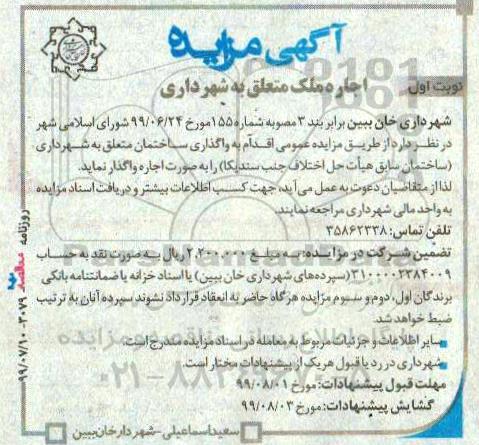 آگهی مزایده
نوبت اول
اجاره ملک متعلق به شهرداری
شهرداری خان ببین برابر بند ۳ مصوبه شماره ۱۵۵ مورخ ۹۹/۰۶/۲۴ شورای اسلامی شهر
در نظر دارد از طریق مزایده عمومی اقدام به واگذاری ساختمان متعلق به شهرداری
(ساختمان سابق هیأت حل اختلاف جنب سندیکا) را به صورت اجاره واگذار نماید.
لذا از متقاضیان دعوت به عمل می‌آید، جهت کسب اطلاعات بیشتر و دریافت اسناد مزایده
به واحد مالی شهرداری مراجعه نمایند.
تلفن تماس: ۳۵۸۶۲۳۳۸
تضمین شرکت در مزایده: به مبلغ ۲,۲۰۰,۰۰۰ ریال به صورت نقد به حساب
۳۱۰۰۰۰۲۳۸۴۰۰۹ (سپرده‌های شهرداری خان ببین) یا اسناد خزانه یا ضمانتنامه بانکی
برندگان اول، دوم و سوم مزایده هرگاه حاضر به انعقاد قرارداد نشوند سپرده آنان به ترتیب
ضبط خواهد شد.
سایر اطلاعات و جزئیات مربوط به معامله در اسناد مزایده مندرج است.
شهرداری در رد یا قبول هر یک از پیشنهادات مختار است.
مهلت قبول پیشنهادات: مورخ ۹۹/۰۸/۰۱
گشایش پیشنهادات: مورخ ۹۹/۰۸/۰۳
سعید اسماعیلی - شهردار خان ببین
روزنامه مناقصه ۳۰۷۹ - ۹۹/۰۷/۱۰